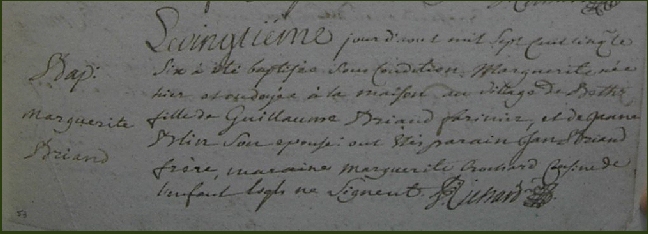 Bap:
Marguerite
Briand
Le vingtiéme jour d'aout mil sept cent cinq te
six a été baptisée sous Condition Marguerite née
hier et ondoyée à la maison au vilage de
fille de Guillaume Briand farinier, et de Jeanne
Blin Son epouse; ont étés parain Jan Briand
frère, maraine Marguerite Crochard Cousine de
l'enfant lesqls ne signent.